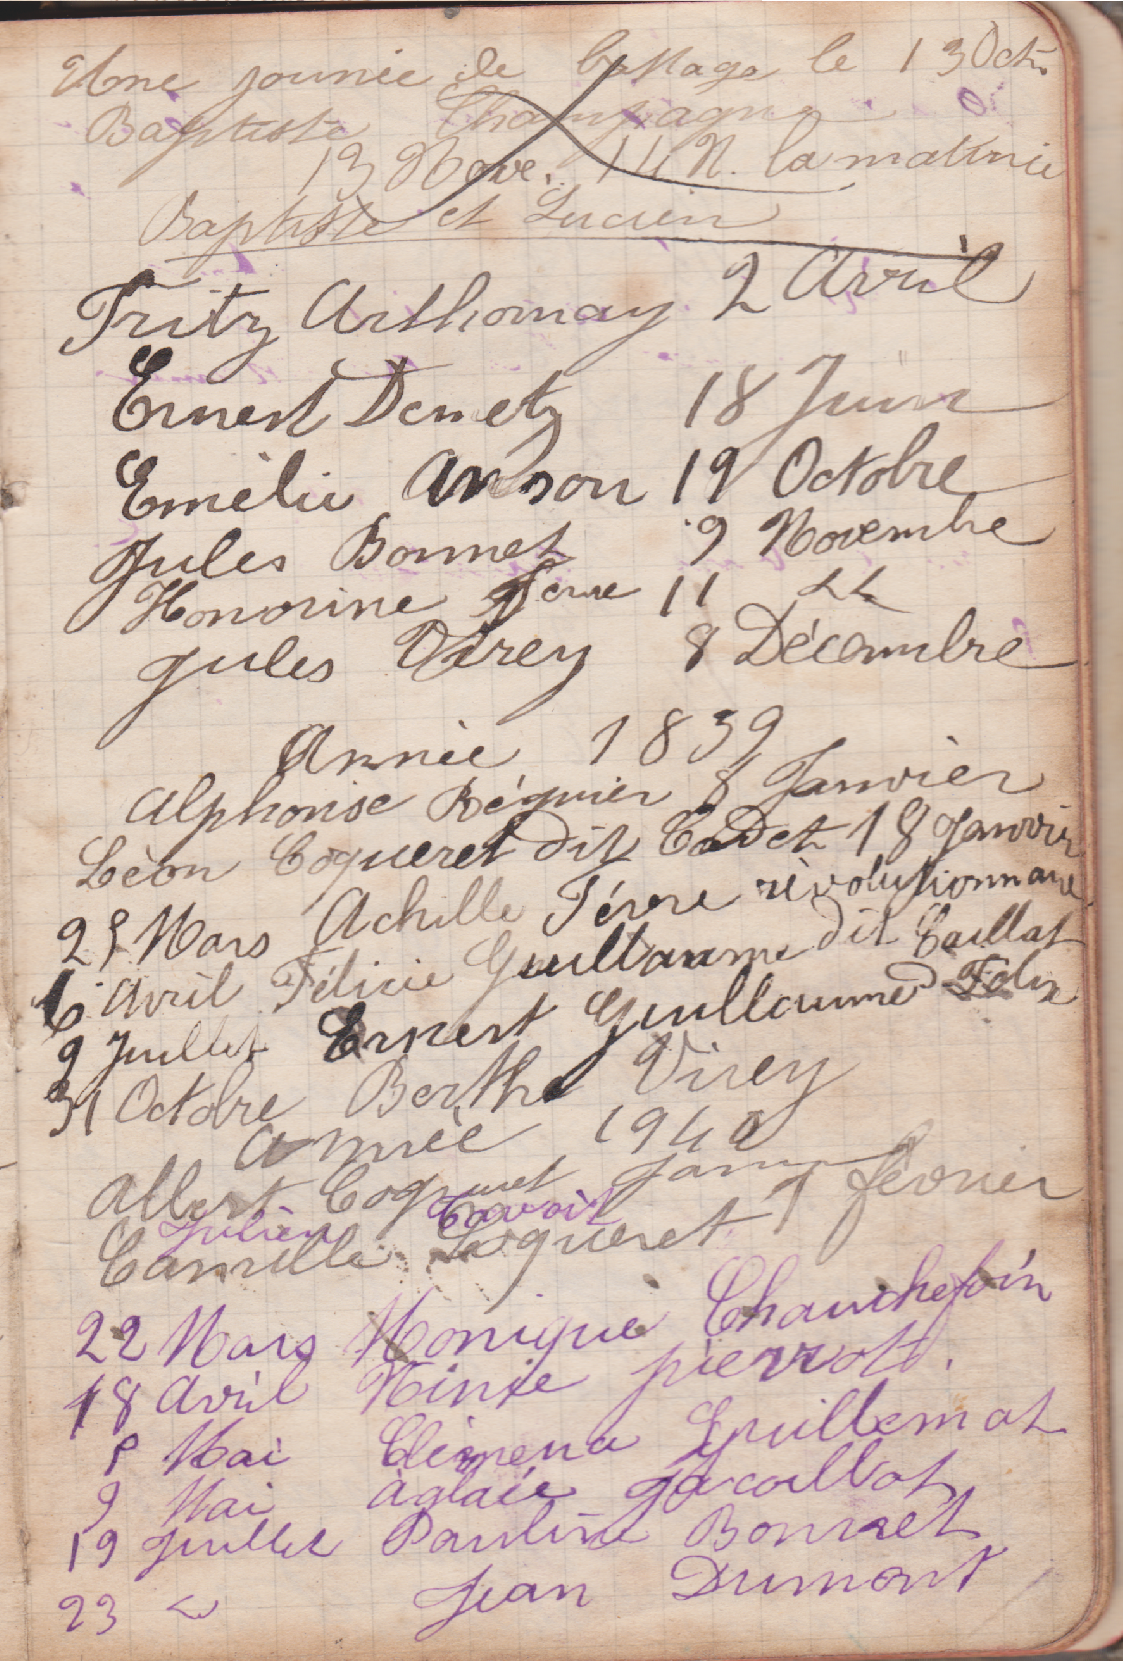 Une jounie de battage le 13 Oct
Baptiste Champagne
13 Nove. 14 N. la matinie
Baptiste et Lucien
Fritz Arthomay 2 Avril
Ernest Demetz 18 Juin
Emélie Anson 19 Octobre
Jules Bonnet 9 Novembre
Honorine Févre 11 "
Jules Virey 8 Décembre
Année 1839
Alphonse Réguier 8 Janvier
Léon Coqueret dit Cadet 18 Janvier
25 Mars Achille Févre révolutionnaire
6 Avril Félicie Guillaume dit Caillat
9 Juillet Ernest Guillaume Félix
31 Octobre Berthe Virey
Année 1940
Albert Coqueret Janv
Julien Savoit
Camille Coqueret 7 février
22 Mars Monique Chauchefoin
18 Avril Ninie pierrott.
5 Mai Clémena Guillemot
9 Mai aglaée Jacaillat
19 Juillet Pauline Bonnet
23 " Jean Dumont